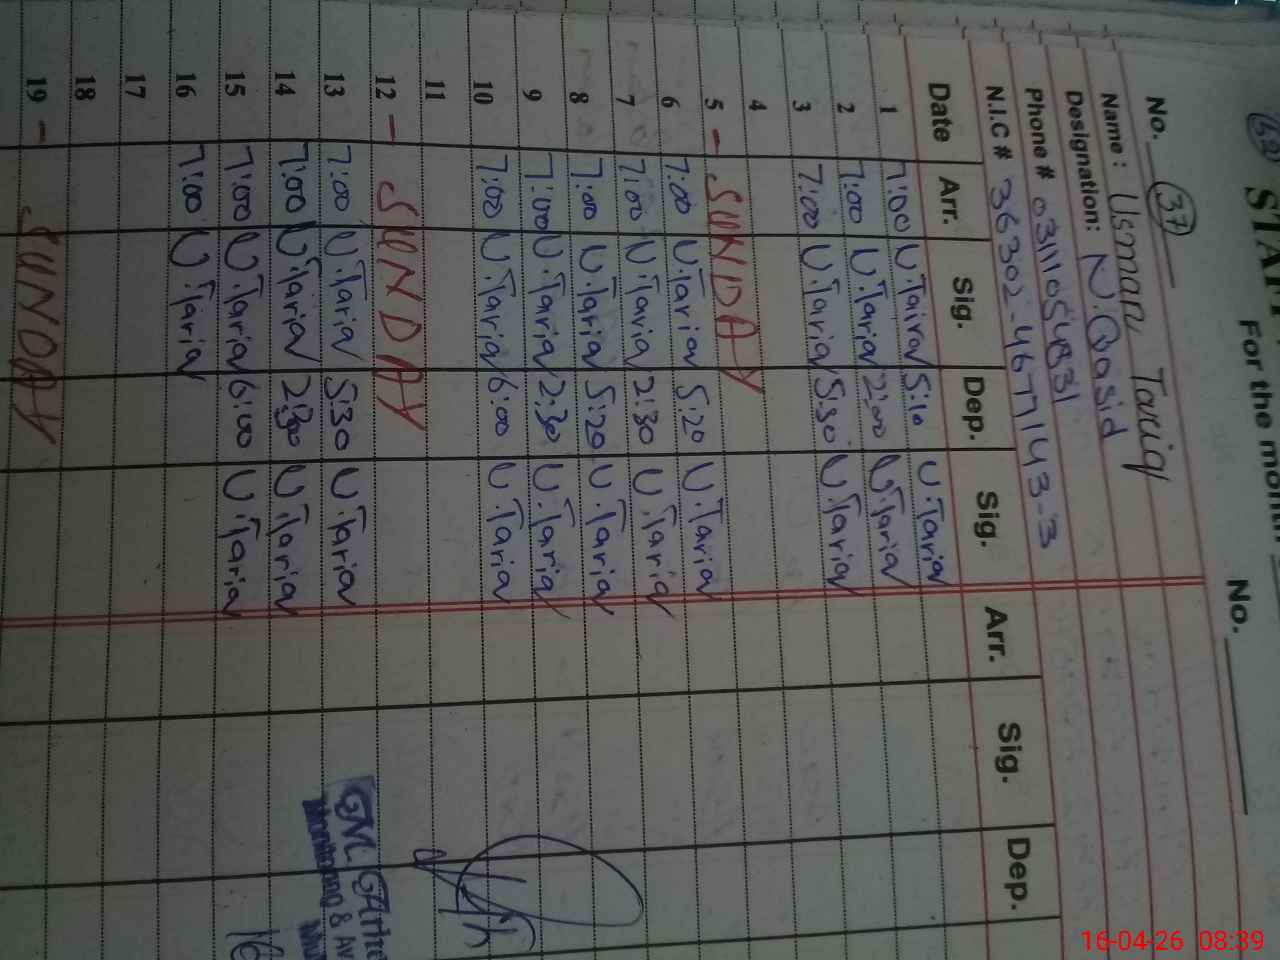 STAFF
For the month
No.
No. 37
Name : Usman Tariq
Designation: N.Qasid
Phone # 03111054831
N.I.C # 36302-4677143-3
Date Arr. Sig. Dep. Sig. Arr. Sig. Dep.
1 7:00 U.Tairq 5:10 U.Tariq
2 7:00 U.Tariq 2:00 U.Tariq
3 7:00 U.Tariq 5:30 U.Tariq
4
5 - SUNDAY
6 7:00 U.Tariq 5:20 U.Tariq
7 7:00 U.Tariq 2:30 U.Tariq
8 7:00 U.Tariq 5:20 U.Tariq
9 7:00 U.Tariq 2:30 U.Tariq
10 7:00 U.Tariq 6:00 U.Tariq
11
12 - SUNDAY
13 7:00 U.Tariq 5:30 U.Tariq
14 7:00 U.Tariq 2:30 U.Tariq
15 7:00 U.Tariq 6:00 U.Tariq
16 7:00 U.Tariq
17
18
19 - SUNDAY
Monitoring &
16
16-04-26 08:39